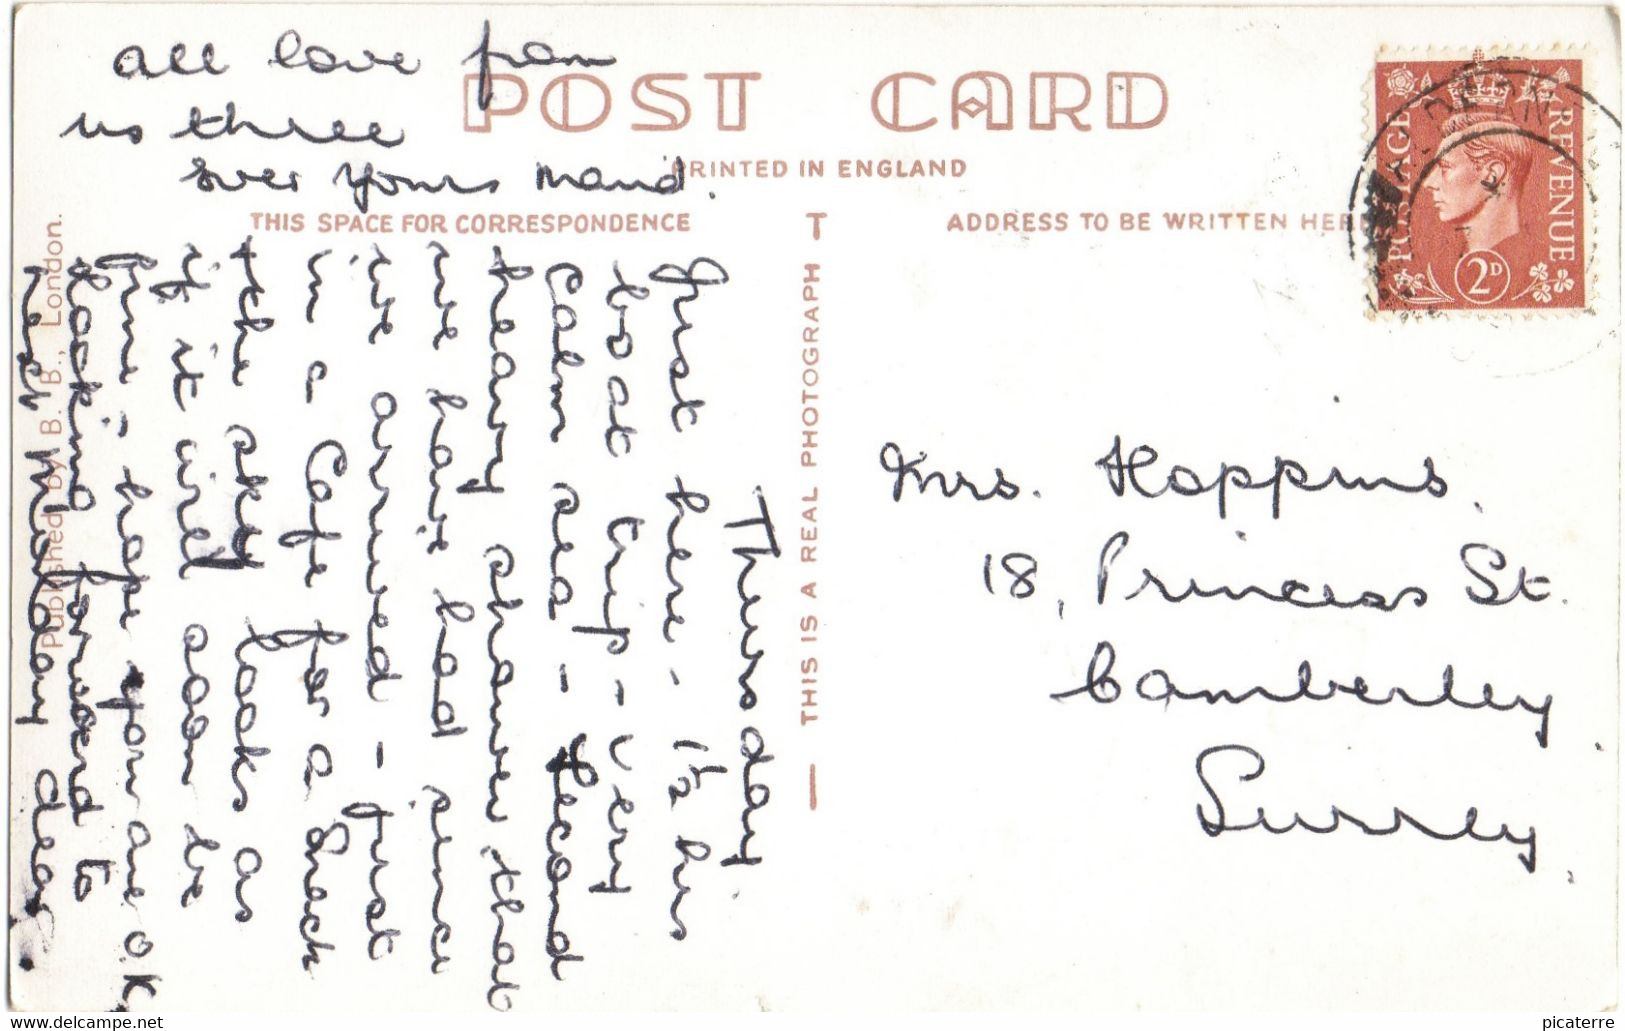 POST CARD
PRINTED IN ENGLAND
THIS SPACE FOR CORRESPONDENCE
ADDRESS TO BE WRITTEN HERE
T
THIS IS A REAL PHOTOGRAPH
Published by B. B., London.
POSTAGE
REVENUE
2D
Thursday.
Just here - 1½ hrs
boat trip - very
calm sea - second
heavy shower that
we have had since
we arrived - first
in a Cafe for a Snack
the sky looks as
if it will soon be
fine - hope you are O.K.
looking forward to
next Monday dear.
all love from
us three
ever yours Maud.
Mrs. Hoppins.
18, Princess St.
Camberley
Surrey.
picaterre